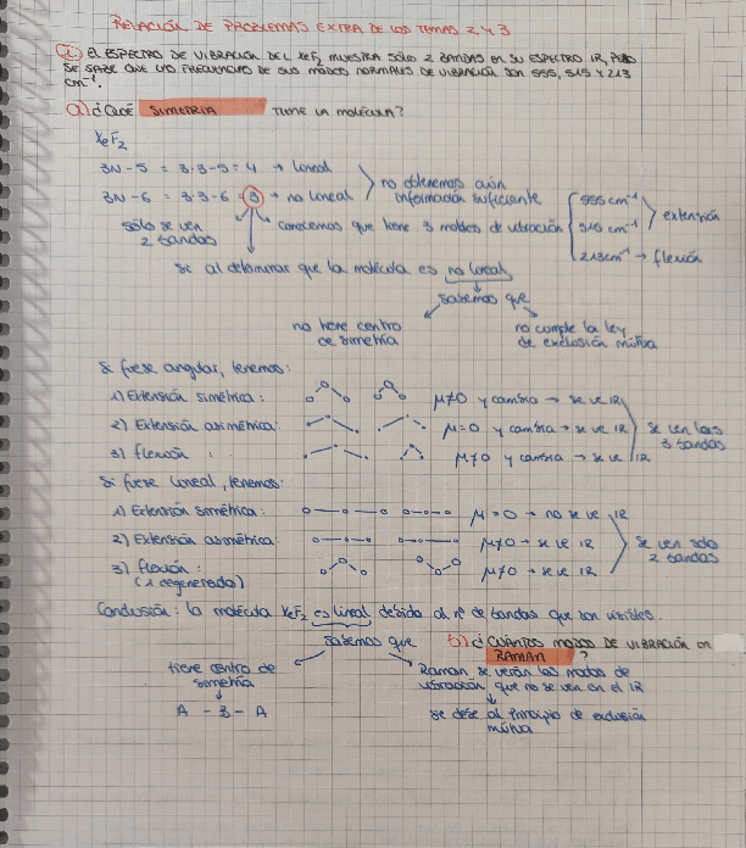 RELACIÓN DE PROBLEMAS EXTRA DE LOS TEMAS 2 Y 3
EL ESPECTRO DE VIBRACIÓN DEL XeF2 MUESTRA SÓLO 2 BANDAS EN SU ESPECTRO IR, PERO
SE SABE QUE LAS FRECUENCIAS DE SUS MODOS NORMALES DE VIBRACIÓN SON 555, 515 Y 213
cm⁻¹.
a) ¿QUÉ SIMETRIA TIENE LA MOLÉCULA?
XeF2
3N - 5 = 3·3-5 = 4 → lineal
3N - 6 = 3·3-6 = 3 → no lineal
no obtenemos aún
información suficiente
sólo se ven
2 bandas
conocemos que tiene 3 moldes de vibración
555 cm⁻¹
515 cm⁻¹
extensión
213cm⁻¹ → flexión
Si al determinar que la molécula es no lineal,
sabemos que
no tiene centro
de simetría
no cumple la ley
de exclusión mútua
Si fuese angular, tenemos:
1) Extensión simétrica: μ≠0 y cambia → se ve IR
2) Extensión asimétrica: μ=0 y cambia → se ve IR
3) flexión : μ≠0 y cambia → se ve IR
se ven las
3 bandas
Si fuese lineal, tenemos:
1) Extensión simétrica: μ = 0 → no se ve IR
2) Extensión asimétrica: μ≠0 → se ve IR
3) flexión : μ≠0 → se ve IR
(1 degenerada)
se ven solo
2 bandas
Conclusión: la molécula XeF2 es lineal debido al nº de bandas que son visibles.
sabemos que
tiene centro de
simetría
A - B - A
b) ¿CUÁNTOS MODOS DE VIBRACIÓN en
RAMAN ?
Raman se verán los modos de
vibración que no se ven en el IR
se debe al Principio de exclusión
mútua